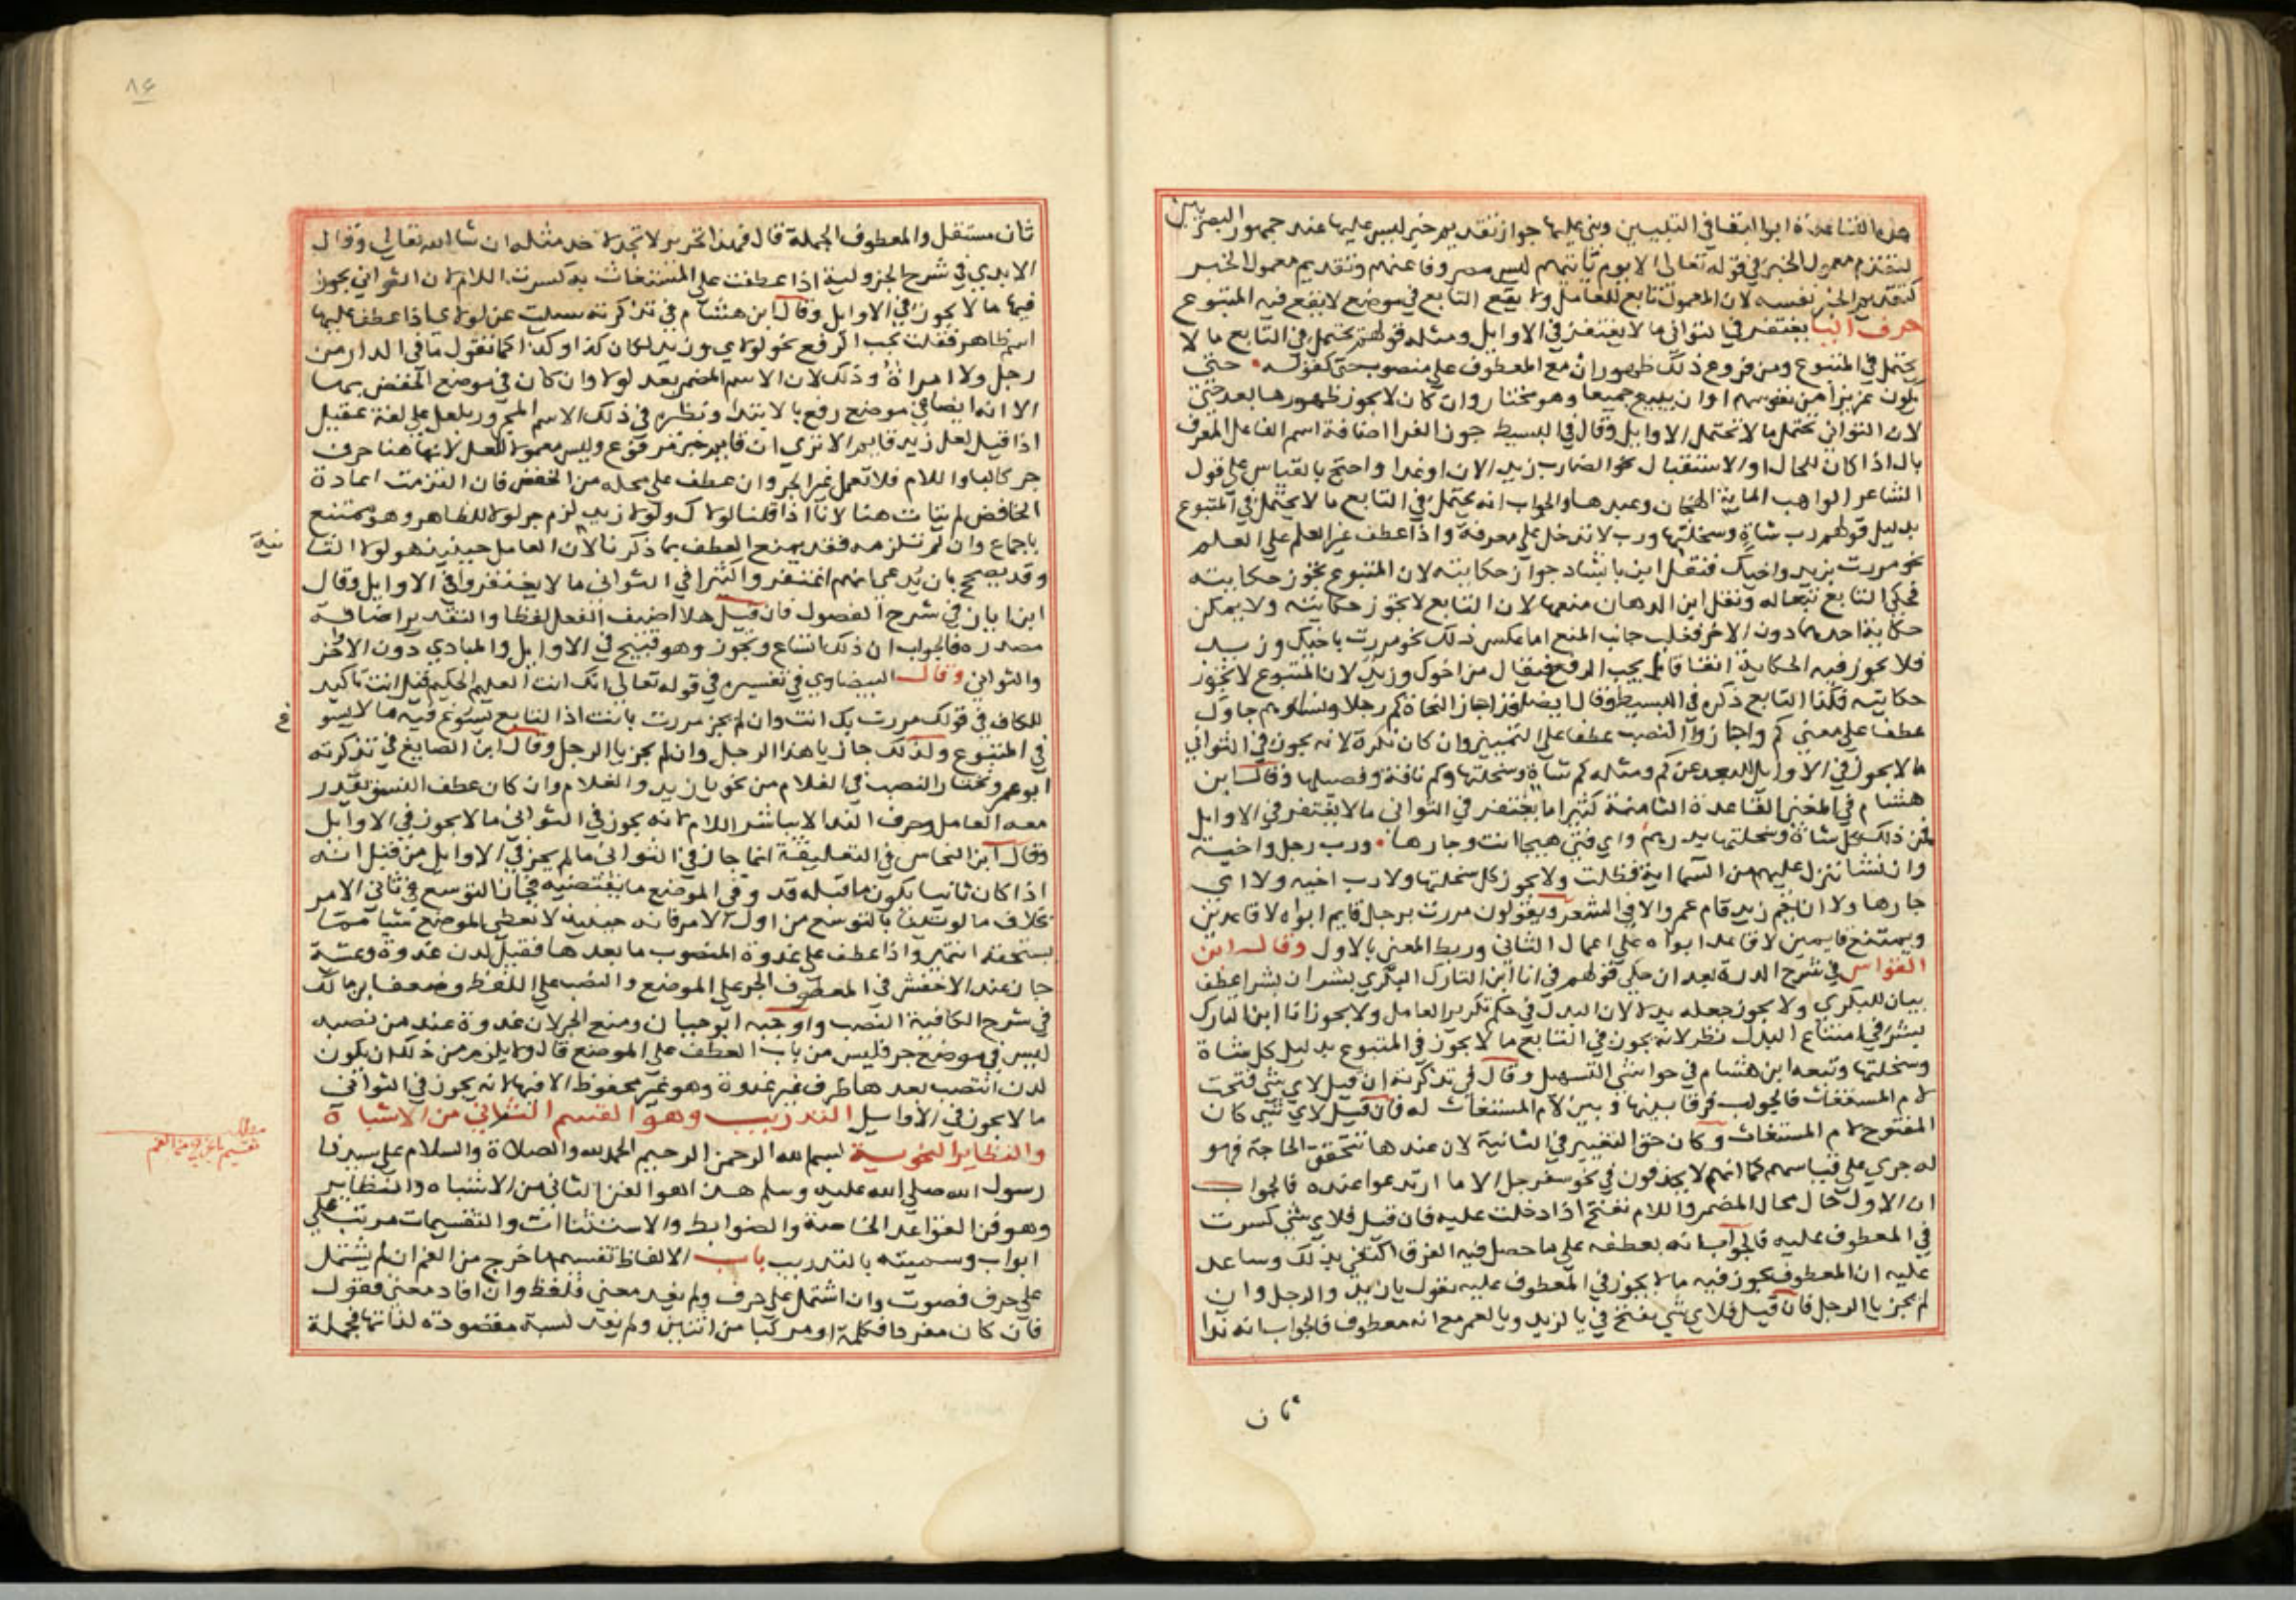 هذه القاعدة ابو البقا في التبيين وبنى عليها جواز تقديم خبر ليس عليها عند جمهور البصريين
لتقدم معمول الخبر في قوله تعالى الا يوم ياتيهم ليس مصروفا عنهم وتقديم معمول الخبر
كتقديم الخبر نفسه لان المعمول تابع للعامل ولا يقع التابع في موضع لا يقع فيه المتبوع
حرف الثا يغتفر في الثواني ما لا يغتفر في الاوايل ومثله قولهم يحتمل في التابع ما لا
يحتمل في المتبوع ومن فروع ذلك ظهور ان مع المعطوف على منصوب حتى كقوله حتى
يكون عزيزا من نفوسهم او ان يبيع جميعا وهو مختار وان كان لا يجوز ظهورها بعد حتى
لان الثواني تحتمل ما لا تحتمل الاوايل وقال في البسيط جوز الفرا اضافة اسم الفاعل المعرف
بال اذا كان للحال او الاستقبال نحو الضارب زيد الان او غدا واحتج بالقياس على قول
الشاعر الواهب الماية الهجان وعبدها والجواب انه يحتمل في التابع ما لا يحتمل في المتبوع
بدليل قولهم رب شاة وسخلتها ورب لا تدخل على معرفة واذا عطف غير العلم على العلم
نحو مررت بزيد واخيك فنقل ابن بابشاد جواز حكايته لان المتبوع تجوز حكايته
فحكي التابع تبعا له ونقل ابن الدهان منعها لان التابع لا تجوز حكايته ولا يمكن
حكاية احدهما دون الاخر فغلب جانب المنع اما عكس ذلك نحو مررت باخيك وزيد
فلا يجوز فيه الحكاية اتفاقا بل يجب الرفع فيقال من اخوك وزيد لان المتبوع لا تجوز
حكايته فكذا التابع ذكره في البسيط وقال ايضا قد اجاز النحاة كم رجلا ونساوهم جاوك
عطف على معنى كم واجازوا النصب عطفا على التمييز وان كان نكرة لانه يجوز في الثواني
ما لا يجوز في الاوايل للبعد عن كم ومثله كم شاة وسخلتها وكم ناقة وفصيلها وقال ابن
هشام في المغني القاعدة الثامنة كثيرا ما يغتفر في الثواني ما لا يغتفر في الاوايل
فمن ذلك كل شاة وسخلتها بدرهم واي فتى هيجا انت وجارها ورب رجل واخيه
وان نشا ننزل عليهم من السما اية فظلت ولا يجوز كل سخلتها ولا رب اخيه ولا اي
جارها ولا ان يقم زيد قام عمرو الا في الشعر ويقولون مررت برجل قايم ابواه لا قاعدين
ويمتنع قايمين لا قاعد ابواه على اعمال الثاني وربط المعنى بالاول وقال ابن
القواس في شرح الدرة بعد ان حكى قولهم في انا ابن التارك البكري بشر ان بشرا عطف
بيان للبكري ولا يجوز جعله بدلا لان البدل في حكم تكرير العامل ولا يجوز انا ابن التارك
بشر في امتناع البدل نظر لانه يجوز في التابع ما لا يجوز في المتبوع بدليل كل شاة
وسخلتها وتبعه ابن هشام في حواشي التسهيل وقال في تذكرته ان قيل لاي شي فتحت
لام المستغاث فالجواب فرقا بينها وبين لام المستغاث له فان قيل لاي شي كان
المفتوح لام المستغاث وكان حق التغيير في الثانية لان عندها تتحقق الحاجة فهو
له جري على قياسهم كما انهم لا يحذفون في نحو سفرجل الا ما ارتدعوا عنده فالجواب
ان الاول حال محال المضمر واللام تفتح اذا دخلت عليه فان قيل فلاي شي كسرت
في المعطوف عليه فالجواب انه بعطفه على ما حصل فيه الفرق اكتفي بذلك وساعد
عليه ان المعطوف يجوز فيه ما لا يجوز في المعطوف عليه تقول يا زيد والرجل وان
لم يجز يا الرجل فان قيل فلاي شي يفتح في يا لزيد ويا لعمرو مع انه معطوف فالجواب انه ندا
ثان
ثان مستقل والمعطوف الجملة قال فهذا تحرير لا تجده لاحد مثله ان شا الله تعالى وقال
الابدي في شرح الجزولية اذا عطفت على المستغاث به كسرت اللام لان الثواني يجوز
فيها ما لا يجوز في الاوايل وقال ابن هشام في تذكرته سيلت عن لولاي اذا عطف عليها
اسم ظاهر فقلت يجب الرفع نحو لولاي وزيد لكان كذا وكذا كما تقول ما في الدار من
رجل ولا امراة وذلك لان الاسم المضمر بعد لولا وان كان في موضع الخفض بها
الا انه ايضا في موضع رفع بالابتدا ونظيره في ذلك الاسم المجرور بلعل على لغة عقيل
اذا قيل لعل زيد قايم الا ترى ان قايم خبر مرفوع وليس معمولا للعل لانها هنا حرف
جر كالبا واللام فلا تعمل غير الجر وان عطف على محله من الخفض فان التزمت اعادة
الخافض لم يتات هنا لانا اذا قلنا لولاك ولولا زيد لزم جر لولا للظاهر وهو ممتنع
باجماع وان لم تلزمه فقد يمتنع العطف بما ذكرنا لان العامل حينيذ هو لولا الثا
نية
وقد يصحح بان يدعى انهم اغتفروا كثيرا في الثواني ما لا يغتفروا في الاوايل وقال
ابن اياز في شرح الفصول فان قيل هلا اضيف الفعل لفظا والتقدير اضافة
مصدره فالجواب ان ذلك اتساع وتجوز وهو قبيح في الاوايل والمبادي دون الاواخر
والثواني وقال البيضاوي في تفسيره في قوله تعالى انك انت العليم الحكيم قيل انت تاكيد
للكاف في قولك مررت بك انت وان لم يجز مررت بانت اذ التابع يسوغ فيه ما لا يسو
غ
في المتبوع ولذلك جاز يا هذا الرجل وان لم يجز يا الرجل وقال ابن الصايغ في تذكرته
ابو عمرو يختار النصب في الغلام من نحو يا زيد والغلام وان كان عطف النسق تقدر
معه العامل وحرف الندا لا يباشر اللام لانه يجوز في الثواني ما لا يجوز في الاوايل
وقال ابن النحاس في التعليقة انما جاز في الثواني ما لم يجز في الاوايل من قبل انه
اذا كان ثانيا يكون ما قبله قد وفى الموضع ما يقتضيه فجاز التوسع في ثاني الامر
بخلاف ما لو اتينا بالتوسع من اول الامر فانه حينيذ لا نعطي الموضع شيا مما
يستحقه انتهى واذا عطف على غدوة المنصوب ما بعدها فقيل لدن غدوة وعشية
جاز عند الاخفش في المعطوف الجر على الموضع والنصب على اللفظ وضعف ابن مالك
في شرح الكافية النصب واوجبه ابو حيان ومنع الجر لان غدوة عند من نصبه
ليس في موضع جر فليس من باب العطف على الموضع قال ولا يلزم من ذلك ان يكون
لدن انتصب بعدها ظرف غير غدوة وهو غير محفوظ الا فيها لانه يجوز في الثواني
ما لا يجوز في الاوايل التدريب وهو القسم الثاني من الاشباه
والنظاير النحوية بسم الله الرحمن الرحيم الحمد لله والصلاة والسلام على سيدنا
رسول الله صلى الله عليه وسلم هذا هو الفن الثاني من الاشباه والنظاير
وهو فن القواعد الخاصة والضوابط والاستثناات والتقسيمات مرتب على
ابواب وسميته بالتدريب باب الالفاظ تقسيم ما خرج من الفم ان لم يشتمل
على حرف فصوت وان اشتمل على حرف ولم يفد معنى فلفظ وان افاد معنى فقول
فان كان مفردا فكلمة او مركبا من اثنين ولم يفد نسبة مقصودة لذاتها فجملة
مطلب
تقسيم ما خرج من الفم
٨٤